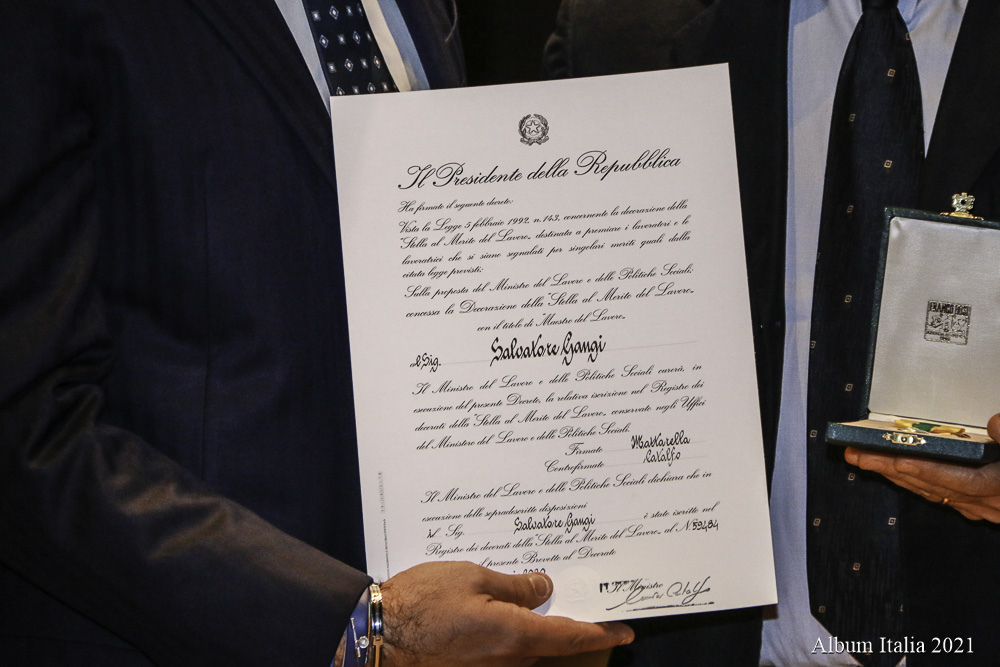 Il Presidente della Repubblica
Ha firmato il seguente decreto:
Vista la Legge 5 febbraio 1992, n. 143, concernente la decorazione della
"Stella al Merito del Lavoro", destinata a premiare i lavoratori e le
lavoratrici che si siano segnalati per singolari meriti quali dalla
citata legge previsti;
Sulla proposta del Ministro del Lavoro e delle Politiche Sociali;
concessa la Decorazione della "Stella al Merito del Lavoro"
con il titolo di "Maestro del Lavoro"
al Sig. Salvatore Gangi
Il Ministro del Lavoro e delle Politiche Sociali curerà, in
esecuzione del presente Decreto, la relativa iscrizione nel Registro dei
decorati della "Stella al Merito del Lavoro" conservato negli Uffici
del Ministero del Lavoro e delle Politiche Sociali.
Firmato Mattarella
Controfirmato Catalfo
Il Ministro del Lavoro e delle Politiche Sociali dichiara che in
esecuzione delle sopradescritte disposizioni
il Sig. Salvatore Gangi è stato iscritto nel
Registro dei decorati della "Stella al Merito del Lavoro" al N.
il presente Brevetto al Decorato
Il Ministro
Album Italia 2021